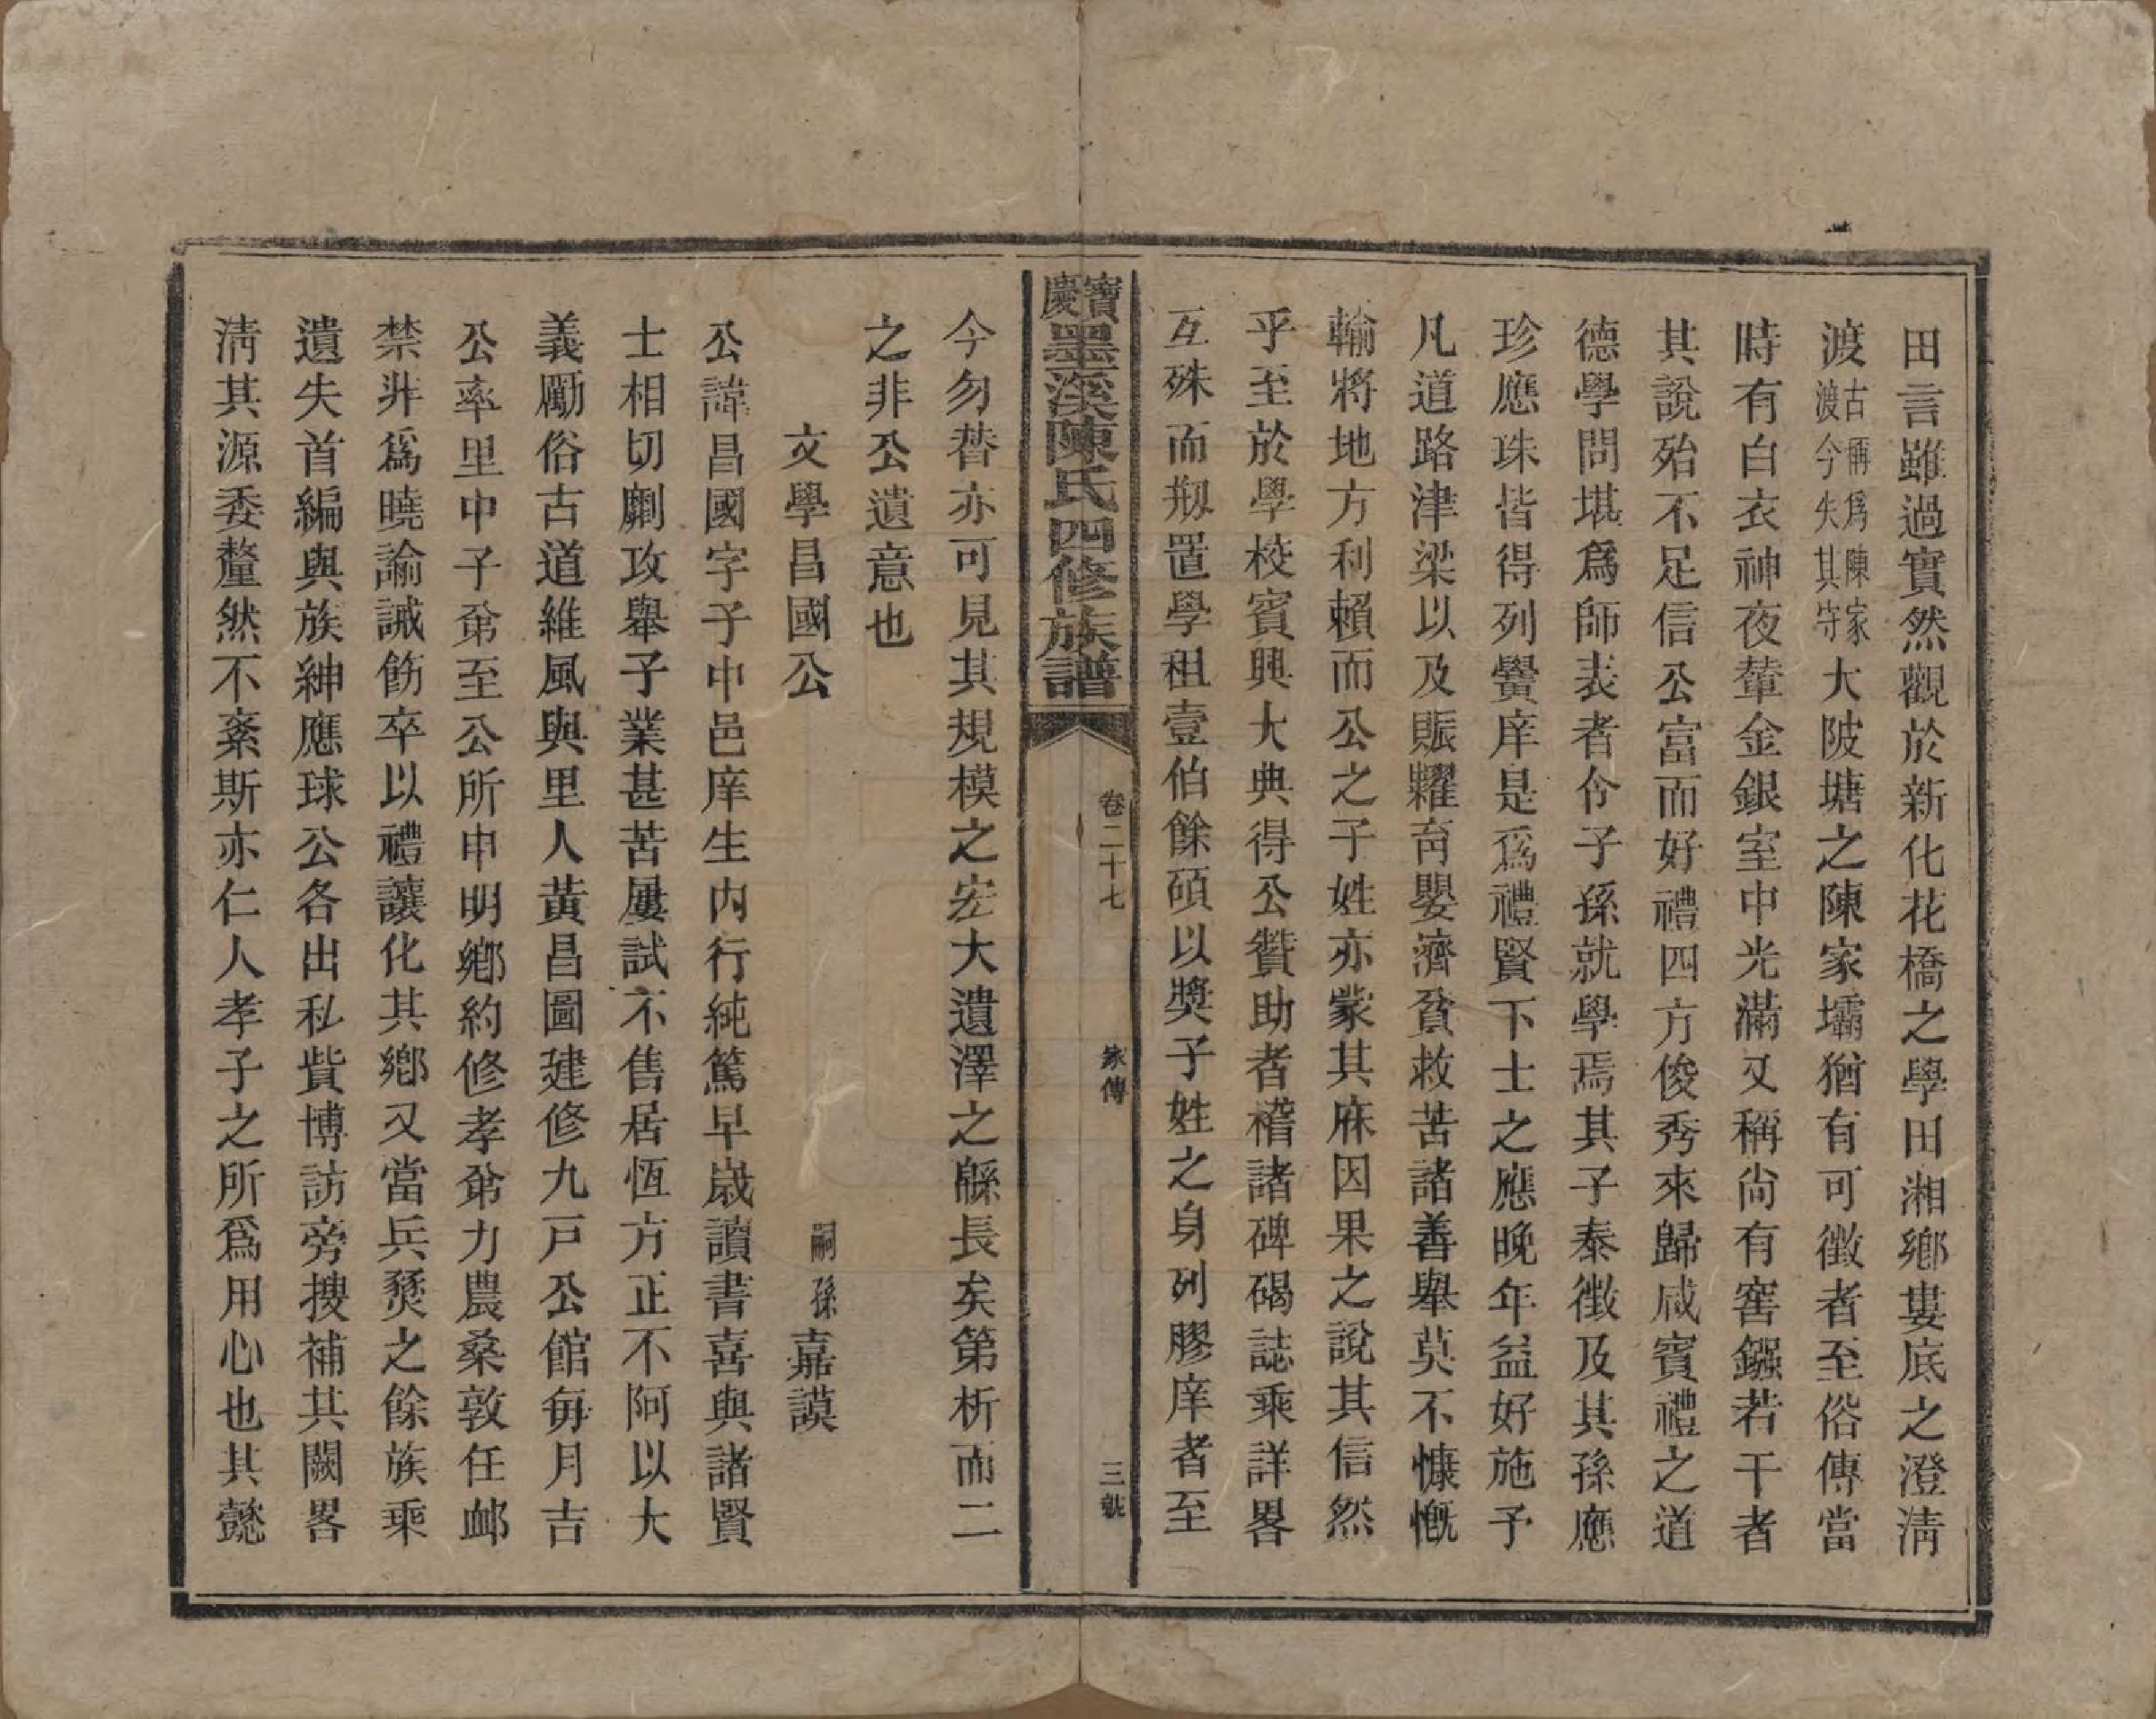 田言雖過實然觀於新化花橋之學田湘鄉婁底之澄淸
渡古稱爲陳家渡今失其守大陂塘之陳家壩猶有可徵者至俗傳當
時有白衣神夜輦金銀室中光滿又稱尙有窖鏹若干者
其說殆不足信公富而好禮四方俊秀來歸咸賓禮之道
德學問堪爲師表者令子孫就學焉其子泰徵及其孫應
珍應珠皆得列黌庠是爲禮賢下士之應晚年益好施予
凡道路津梁以及賑糶育嬰濟貧救苦諸善舉莫不慷慨
輸將地方利賴而公之子姓亦蒙其庥因果之說其信然
乎至於學校賓興大典得公贊助者稽諸碑碣誌乘詳畧
互殊而剏置學租壹伯餘碩以奬子姓之身列膠庠者至
寶慶墨溪陳氏四修族譜
卷二十七
家傳
三號
今勿替亦可見其規模之宏大遺澤之緜長矣第析而二
之非公遺意也
文學昌國公
嗣孫嘉謨
公諱昌國字子中邑庠生內行純篤早歲讀書喜與諸賢
士相切劘攻舉子業甚苦屢試不售居恆方正不阿以大
義勵俗古道維風與里人黃昌圖建修九戸公館每月吉
公率里中子弟至公所申明鄉約修孝弟力農桑敦任䘏
禁非爲曉諭誡飭卒以禮讓化其鄉又當兵燹之餘族乘
遺失首編與族紳應球公各出私貲博訪旁搜補其闕畧
淸其源委釐然不紊斯亦仁人孝子之所爲用心也其懿